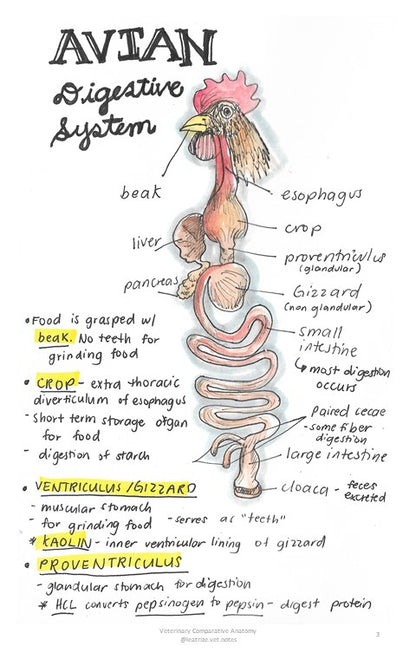 AVIAN
Digestive
System
beak
esophagus
crop
liver
proventriculus
(glandular)
pancreas
Gizzard
(non glandular)
small
intestine
↳ most digestion
occurs
• Food is grasped w/
beak. No teeth for
grinding food
• CROP - extra thoracic
diverticulum of esophagus
- short term storage organ
for food
- digestion of starch
paired cecae
- some fiber
digestion
large intestine
cloaca - feces
excreted
• VENTRICULUS/GIZZARD
- muscular stomach
- for grinding food - serves as "teeth"
* KAOLIN - inner ventricular lining of gizzard
• PROVENTRICULUS
- glandular stomach for digestion
* HCL converts pepsinogen to pepsin - digest protein
Veterinary Comparative Anatomy
@leatrae.vet.notes
3